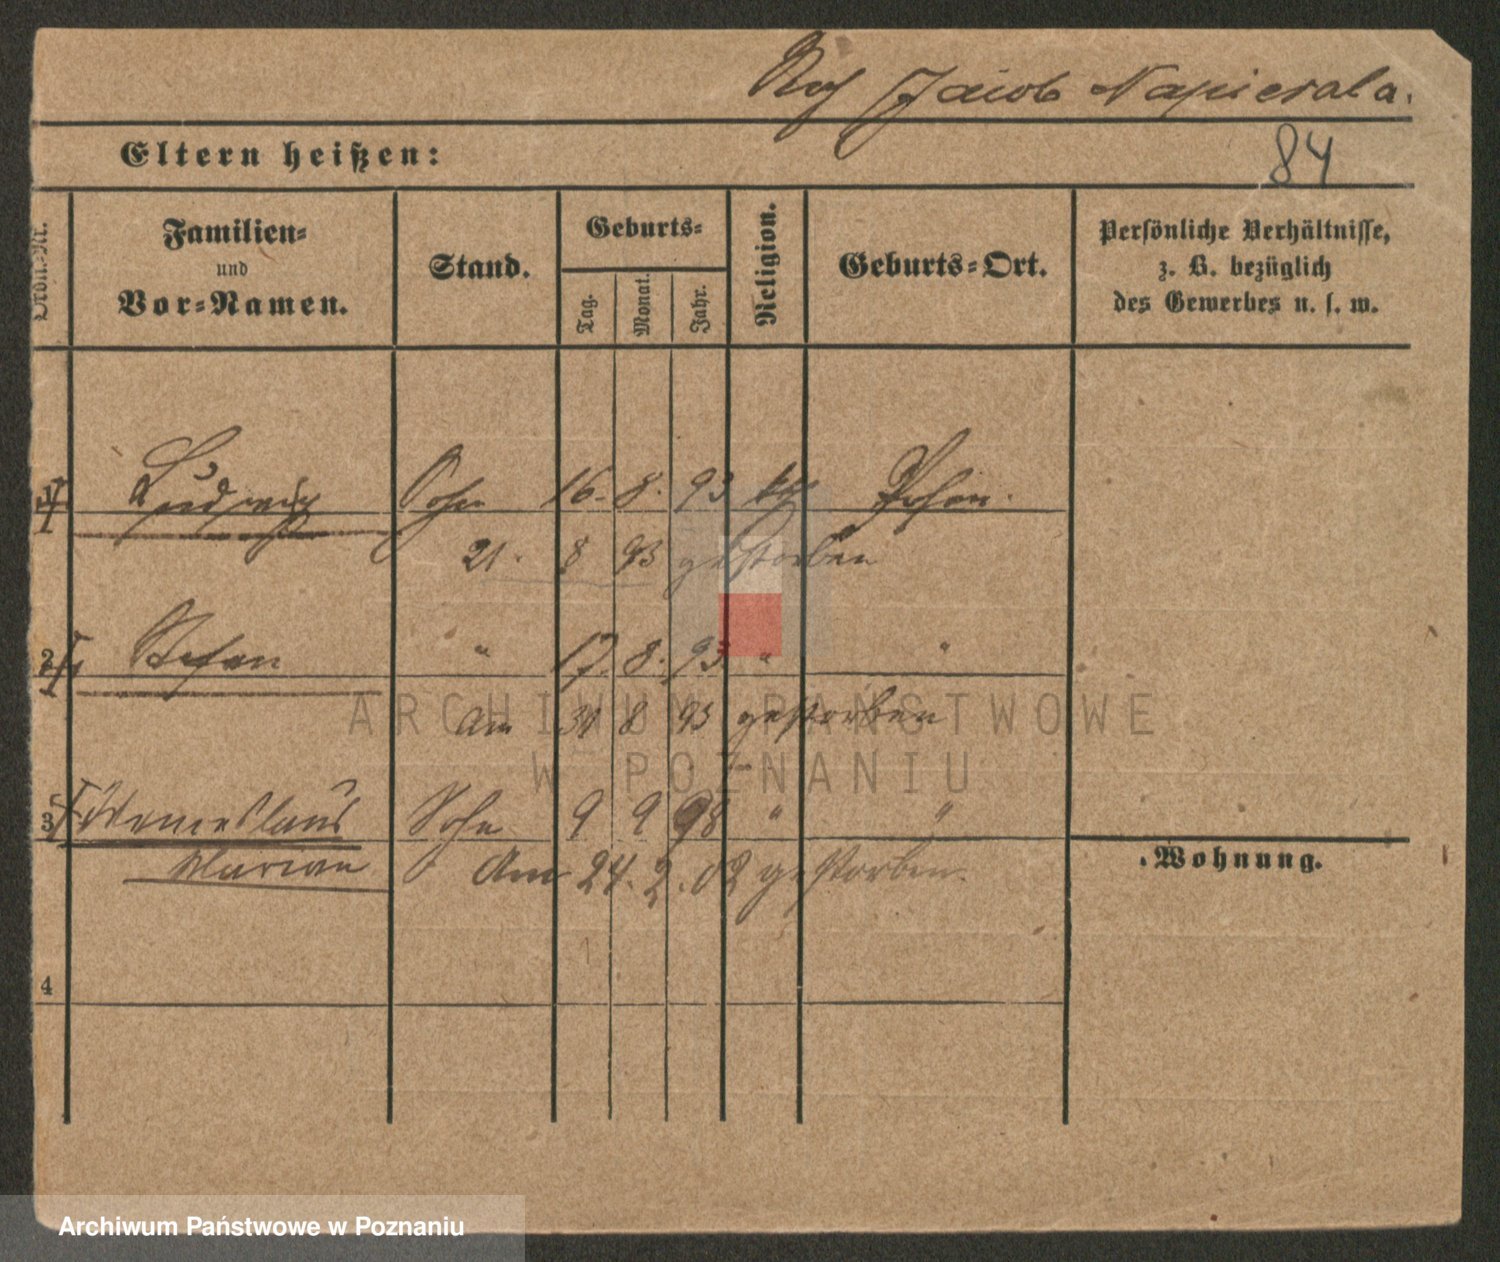 Roch Jacob Napierala.
84
Eltern heißen:
Ordn.-Nr.
Familien-
und
Vor-Namen.
Stand.
Geburts-
Tag.
Monat.
Jahr.
Religion.
Geburts-Ort.
Persönliche Verhältnisse,
z. B. bezüglich
des Gewerbes u. s. w.
1 Ludwig Sohn 16. 8. 93 kth Posen.
21. 8 93 gestorben
2 Stefan " 17. 8. 93 " "
Am 31 8 93 gestorben
3 Sohn 9 9 98 " "
Marian Am 24. 2. 02 gestorben.
Wohnung.
4
ARCHIWUM PAŃSTWOWE
W POZNANIU
Archiwum Państwowe w Poznaniu